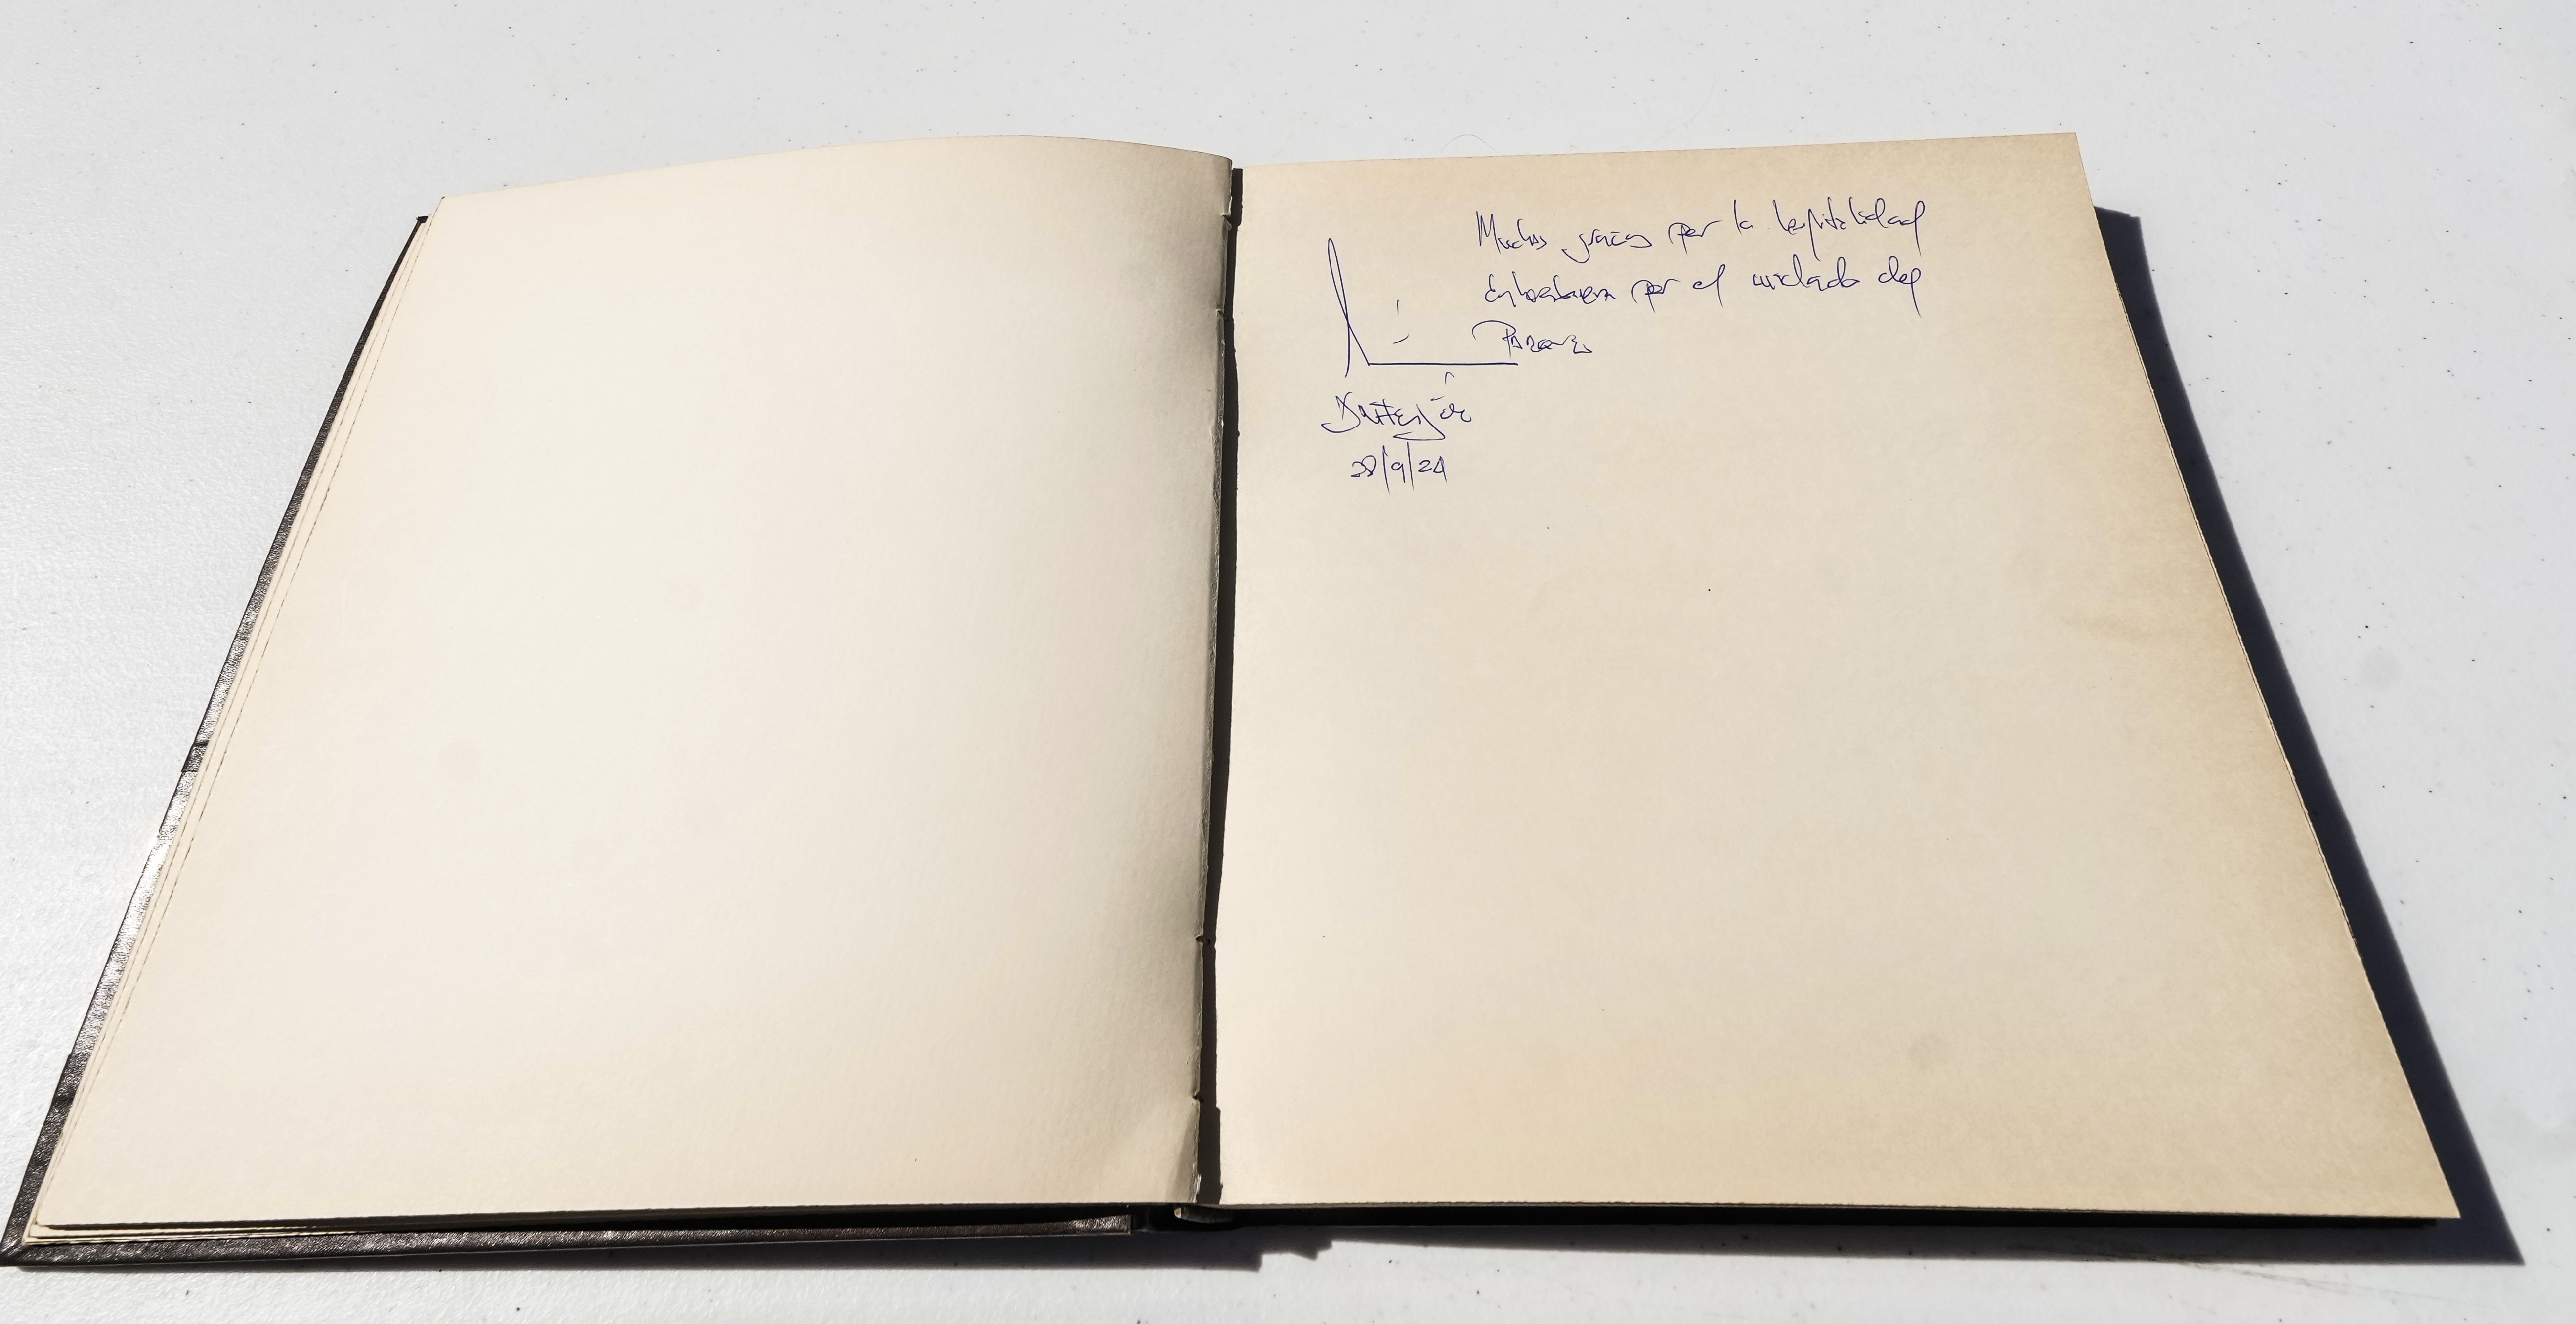 Muchas gracias por la hospitalidad
Enhorabuena por el cuidado del
28/9/24